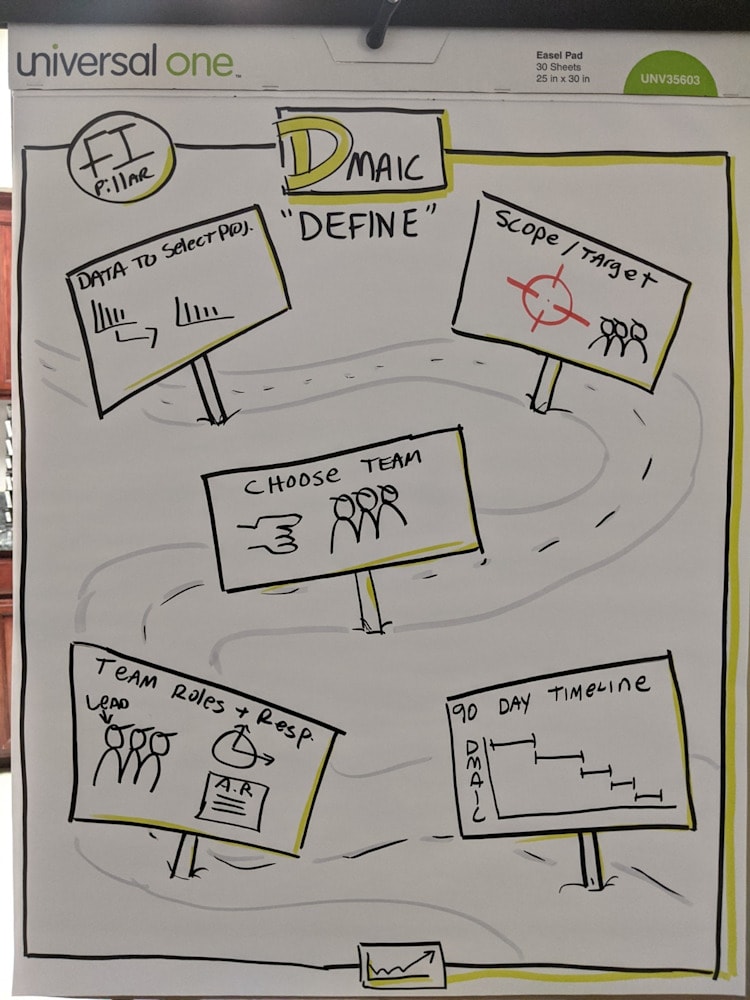 universal one™
Easel Pad
30 Sheets
25 in x 30 in
UNV35603
FI
PillAR
DMAIC
"DEFINE"
DATA TO Select PROJ.
SCOPE/TARGET
CHOOSE TEAM
TEAM ROLES + RESP.
LEAD
A.R
90 DAY TIMELINE
D
M
A
I
C